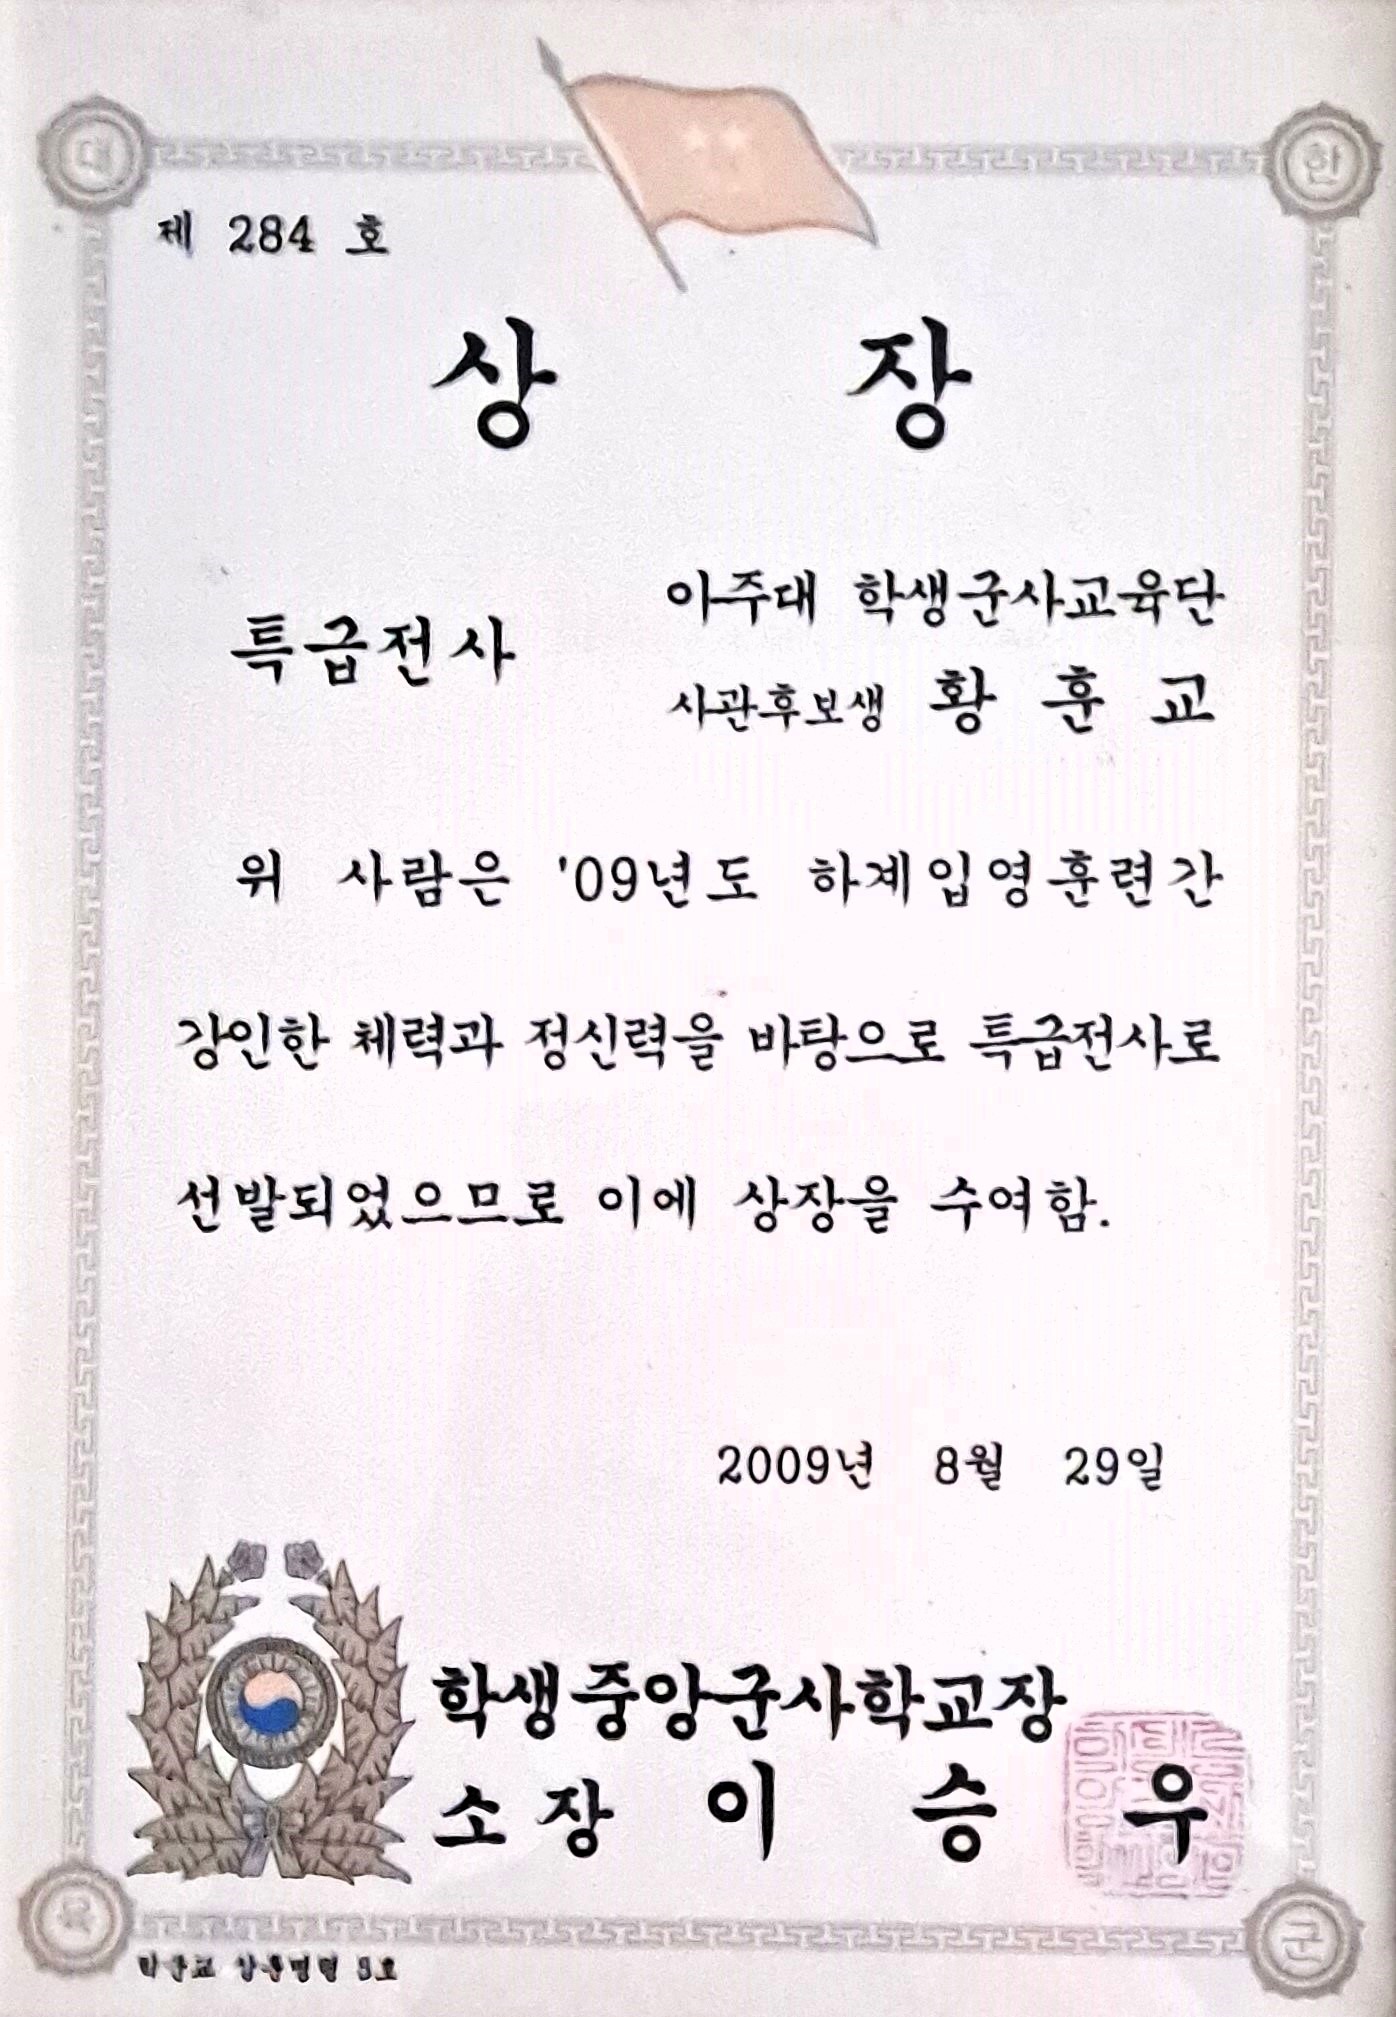 대 한
제 284 호
상 장
특급전사
아주대 학생군사교육단
사관후보생 황 훈 교
위 사람은 '09년도 하계입영훈련간
강인한 체력과 정신력을 바탕으로 특급전사로
선발되었으므로 이에 상장을 수여함.
2009년 8월 29일
학생중앙군사학교장
소장 이 승 우
육 군